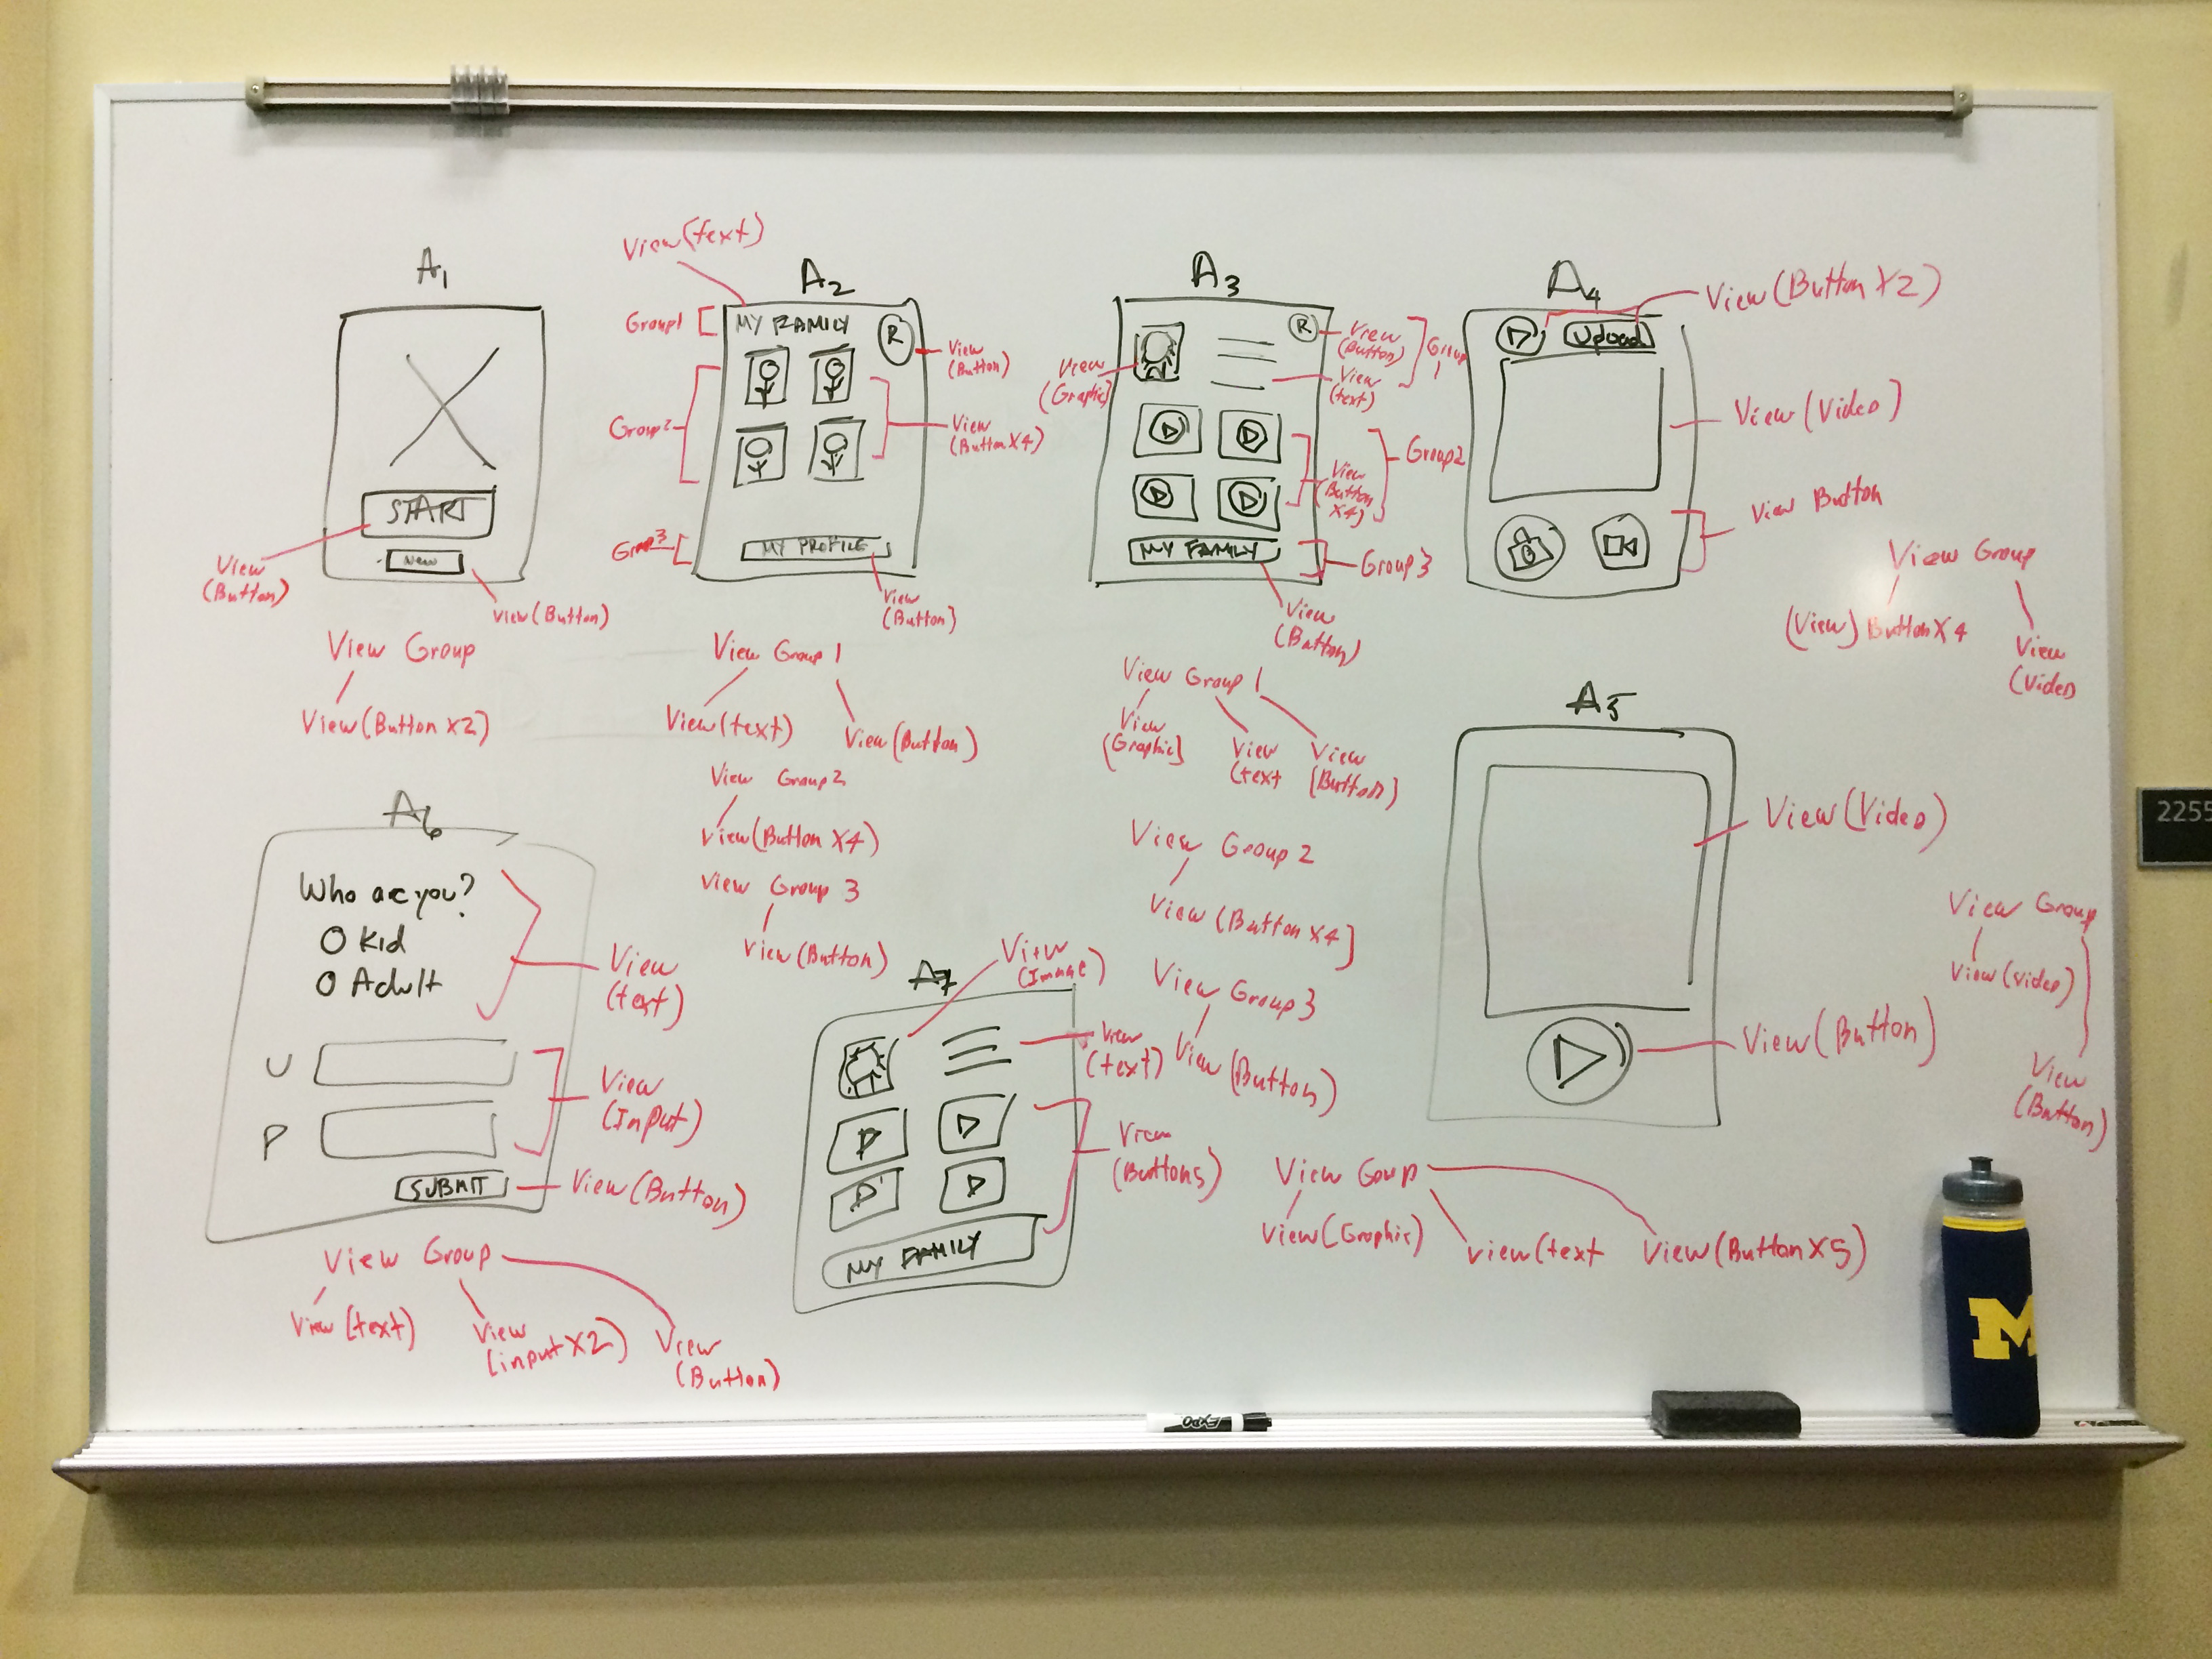 A1
START
New
View
(Button)
View(Button)
View Group
View(Button X2)
View(text)
A2
Group1
MY FAMILY
R
View
(Button)
Group2
View
(Button X4)
Group3
MY PROFILE
View
(Button)
View Group 1
View(text)
View(Button)
View Group2
View(Button X4)
View Group 3
View(Button)
A3
R
View
(Button)
Group
1
View
(Graphic)
View
(text)
View
(Button
X4)
Group2
MY FAMILY
Group3
View
(Button)
View Group 1
View
(Graphic)
View
(text
View
(Button)
View Group 2
View(Button X4)
View Group3
View(Button)
A4
View(Button X2)
Upload
View(Video)
View Button
View Group
(View) Button X4
View
(Video
A5
View(Video)
View(Button)
View Group
View(Video)
View
(Button)
A6
Who are you?
Kid
Adult
View
(text)
U
P
View
(Input)
SUBMIT
View(Button)
View Group
View(text)
View
(input X2)
View
(Button)
A7
View
(Image)
View
(text)
View
(Buttons)
MY FAMILY
View Goup
View(Graphic)
View(text
View(Button X5)
2255
EXPO
M